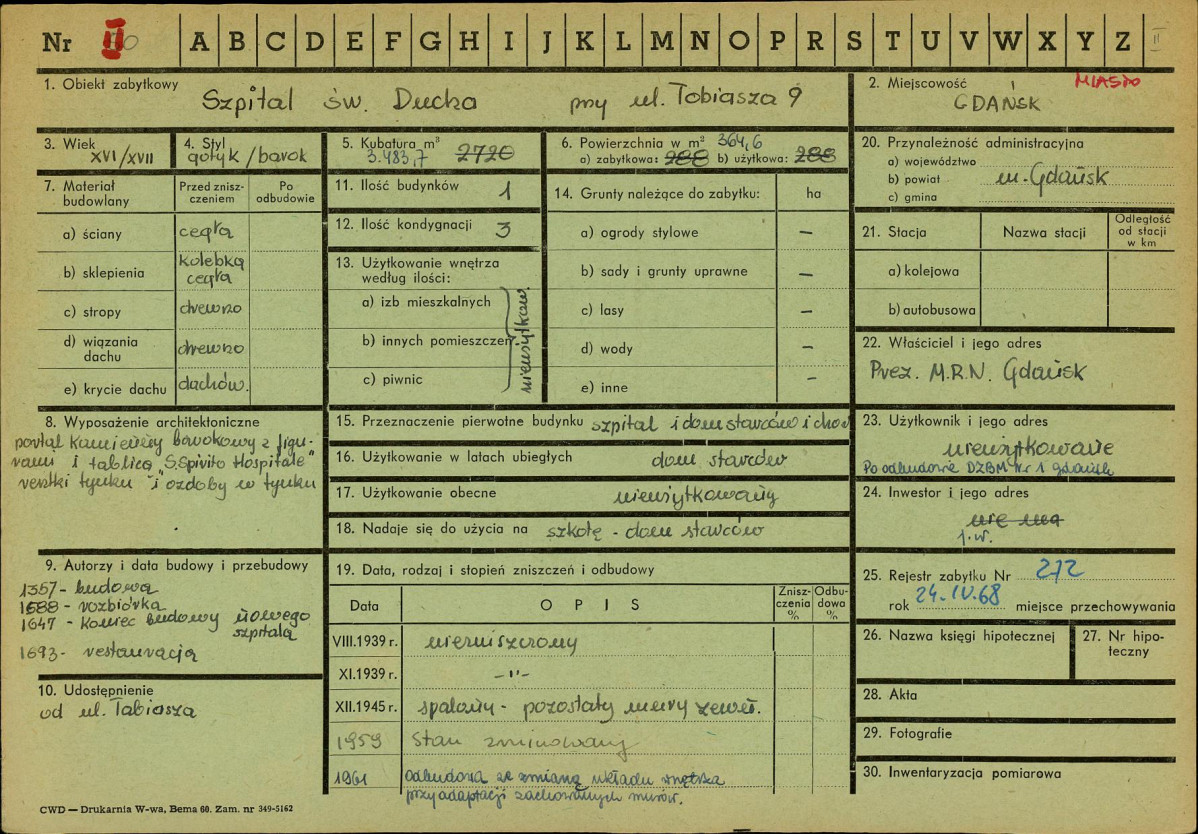 Nr II A B C D E F G H I J K L M N O P R S T U V W X Y Z II
1. Obiekt zabytkowy
Szpital św. Ducha przy ul. Tobiasza 9
2. Miejscowość MIASTO
GDAŃSK
3. Wiek
XVI/XVII
4. Styl
gotyk/barok
5. Kubatura m³
3.483,7 2720
6. Powierzchnia w m² 364,6
a) zabytkowa: 288 b) użytkowa: 288
20. Przynależność administracyjna
a) województwo
b) powiat m. Gdańsk
c) gmina
7. Materiał budowlany
Przed zniszczeniem
Po odbudowie
a) ściany cegła
b) sklepienia kolebka cegła
c) stropy drewno
d) wiązania dachu drewno
e) krycie dachu dachów.
11. Ilość budynków 1
12. Ilość kondygnacji 3
13. Użytkowanie wnętrza
według ilości:
a) izb mieszkalnych
b) innych pomieszczeń
c) piwnic
nieużytkow.
14. Grunty należące do zabytku: ha
a) ogrody stylowe –
b) sady i grunty uprawne –
c) lasy –
d) wody –
e) inne –
21. Stacja Nazwa stacji Odległość od stacji w km
a) kolejowa
b) autobusowa
22. Właściciel i jego adres
Prez. M.R.N. Gdańsk
8. Wyposażenie architektoniczne
portal kamienny barokowy z figu-
rami i tablicą "S.Spirito Hospitale"
resztki tynku i ozdoby w tynku
15. Przeznaczenie pierwotne budynku szpital i dom starców i chor
16. Użytkowanie w latach ubiegłych dom starców
17. Użytkowanie obecne nieużytkowany
18. Nadaje się do użycia na szkołę - dom starców
23. Użytkownik i jego adres
nieużytkowane
Po odbudowie DZBM Nr 1 Gdańsk
24. Inwestor i jego adres
nie ma
j.w.
9. Autorzy i data budowy i przebudowy
1357 - budowa
1688 - rozbiórka
1647 - koniec budowy nowego
szpitala
1693 - restauracja
10. Udostępnienie
od ul. Tabiasza
19. Data, rodzaj i stopień zniszczeń i odbudowy
Data OPIS Zniszczenia % Odbudowa %
VIII.1939 r. niezniszczony
XI.1939 r. -"-
XII.1945 r. spalony - pozostały mury zewn.
1959 Stan zminowany
1961 odbudowa ze zmianą układu wnętrza
przy adaptacji zachowanych murów.
25. Rejestr zabytku Nr 272
rok 24.IV.68 miejsce przechowywania
26. Nazwa księgi hipotecznej
27. Nr hipoteczny
28. Akta
29. Fotografie
30. Inwentaryzacja pomiarowa
CWD — Drukarnia W-wa, Bema 60. Zam. nr 349-5162